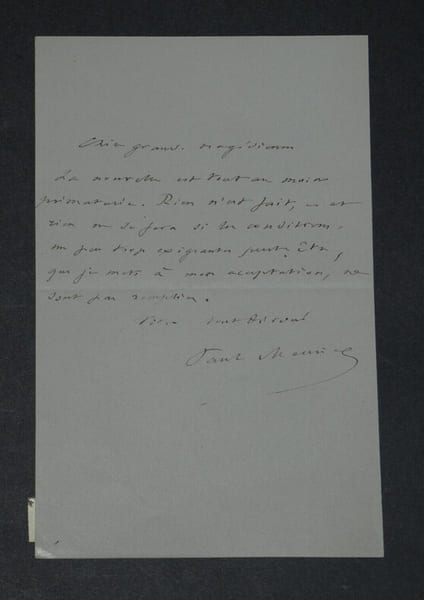 Cher grand tragédien
La nouvelle est tout au moins
prématurée. Rien n'est fait, et
rien ne se fera si les conditions,
un peu trop exigeantes peut-être,
que je mets à mon acceptation, ne
sont pas remplies.
Votre tout dévoué
Paul Meurice